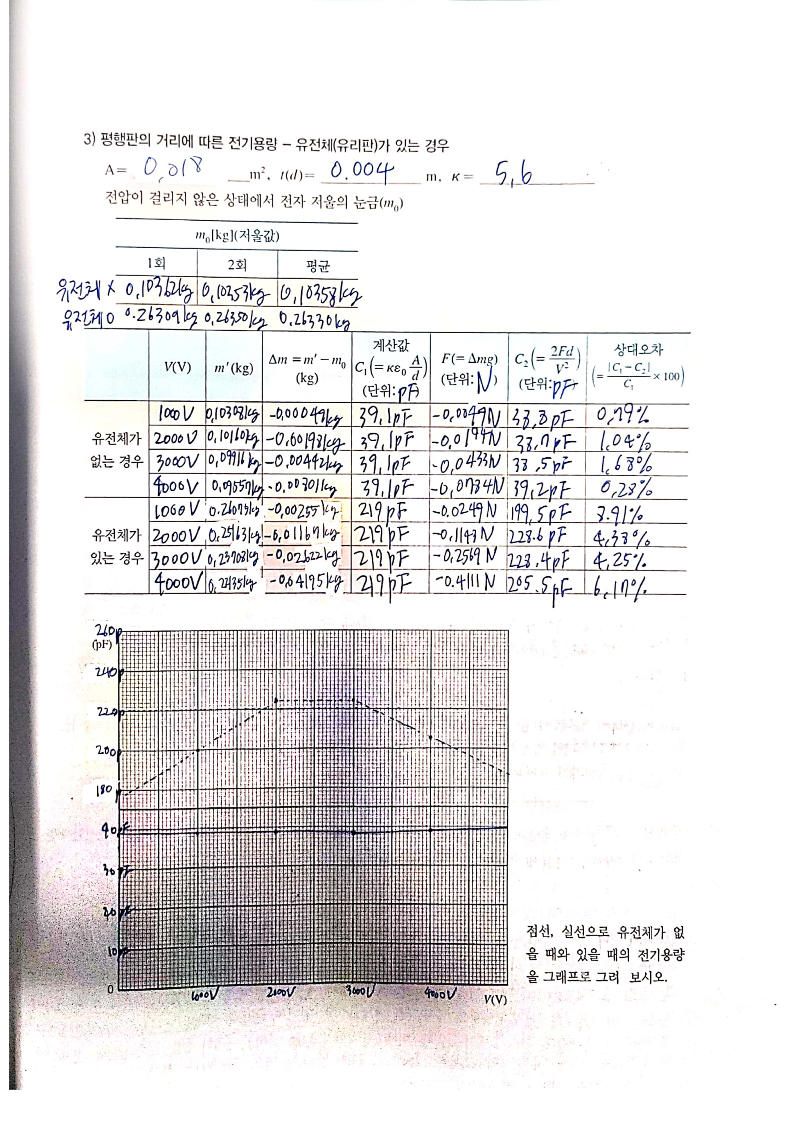 3) 평행판의 거리에 따른 전기용량 – 유전체(유리판)가 있는 경우
A= 0.018 m², t(d)= 0.004 m, κ= 5.6
전압이 걸리지 않은 상태에서 전자 저울의 눈금(m₀)
m₀[kg](저울값)
1회 2회 평균
유전체 X 0.10362kg 0.10353kg 0.10358kg
유전체 O 0.26309kg 0.26350kg 0.26330kg
V(V) m′(kg) Δm = m′ − m₀ (kg) 계산값 C₁(= κε₀ A/d) (단위: pF) F(= Δmg) (단위: N) C₂(= 2Fd/V²) (단위: pF) 상대오차 (= |C₁ − C₂|/C₁ × 100)
유전체가 없는 경우
1000V 0.10308kg -0.00049kg 39.1pF -0.0049N 38.8pF 0.79%
2000V 0.10160kg -0.00198kg 39.1pF -0.0194N 38.7pF 1.04%
3000V 0.09916kg -0.00442kg 39.1pF -0.0433N 38.5pF 1.68%
4000V 0.09557kg -0.00801kg 39.1pF -0.0784N 39.2pF 0.28%
유전체가 있는 경우
1000V 0.26075kg -0.00255kg 219pF -0.0249N 199.5pF 8.91%
2000V 0.25163kg -0.01167kg 219pF -0.1143N 228.6pF 4.38%
3000V 0.23708kg -0.02622kg 219pF -0.2569N 228.4pF 4.25%
4000V -0.04195kg 219pF -0.4111N 205.5pF 6.17%
260p
(pF)
240p
220p
200p
180p
40pF
30pF
20pF
10pF
0
1000V 2000V 3000V 4000V V(V)
점선, 실선으로 유전체가 없
을 때와 있을 때의 전기용량
을 그래프로 그려 보시오.